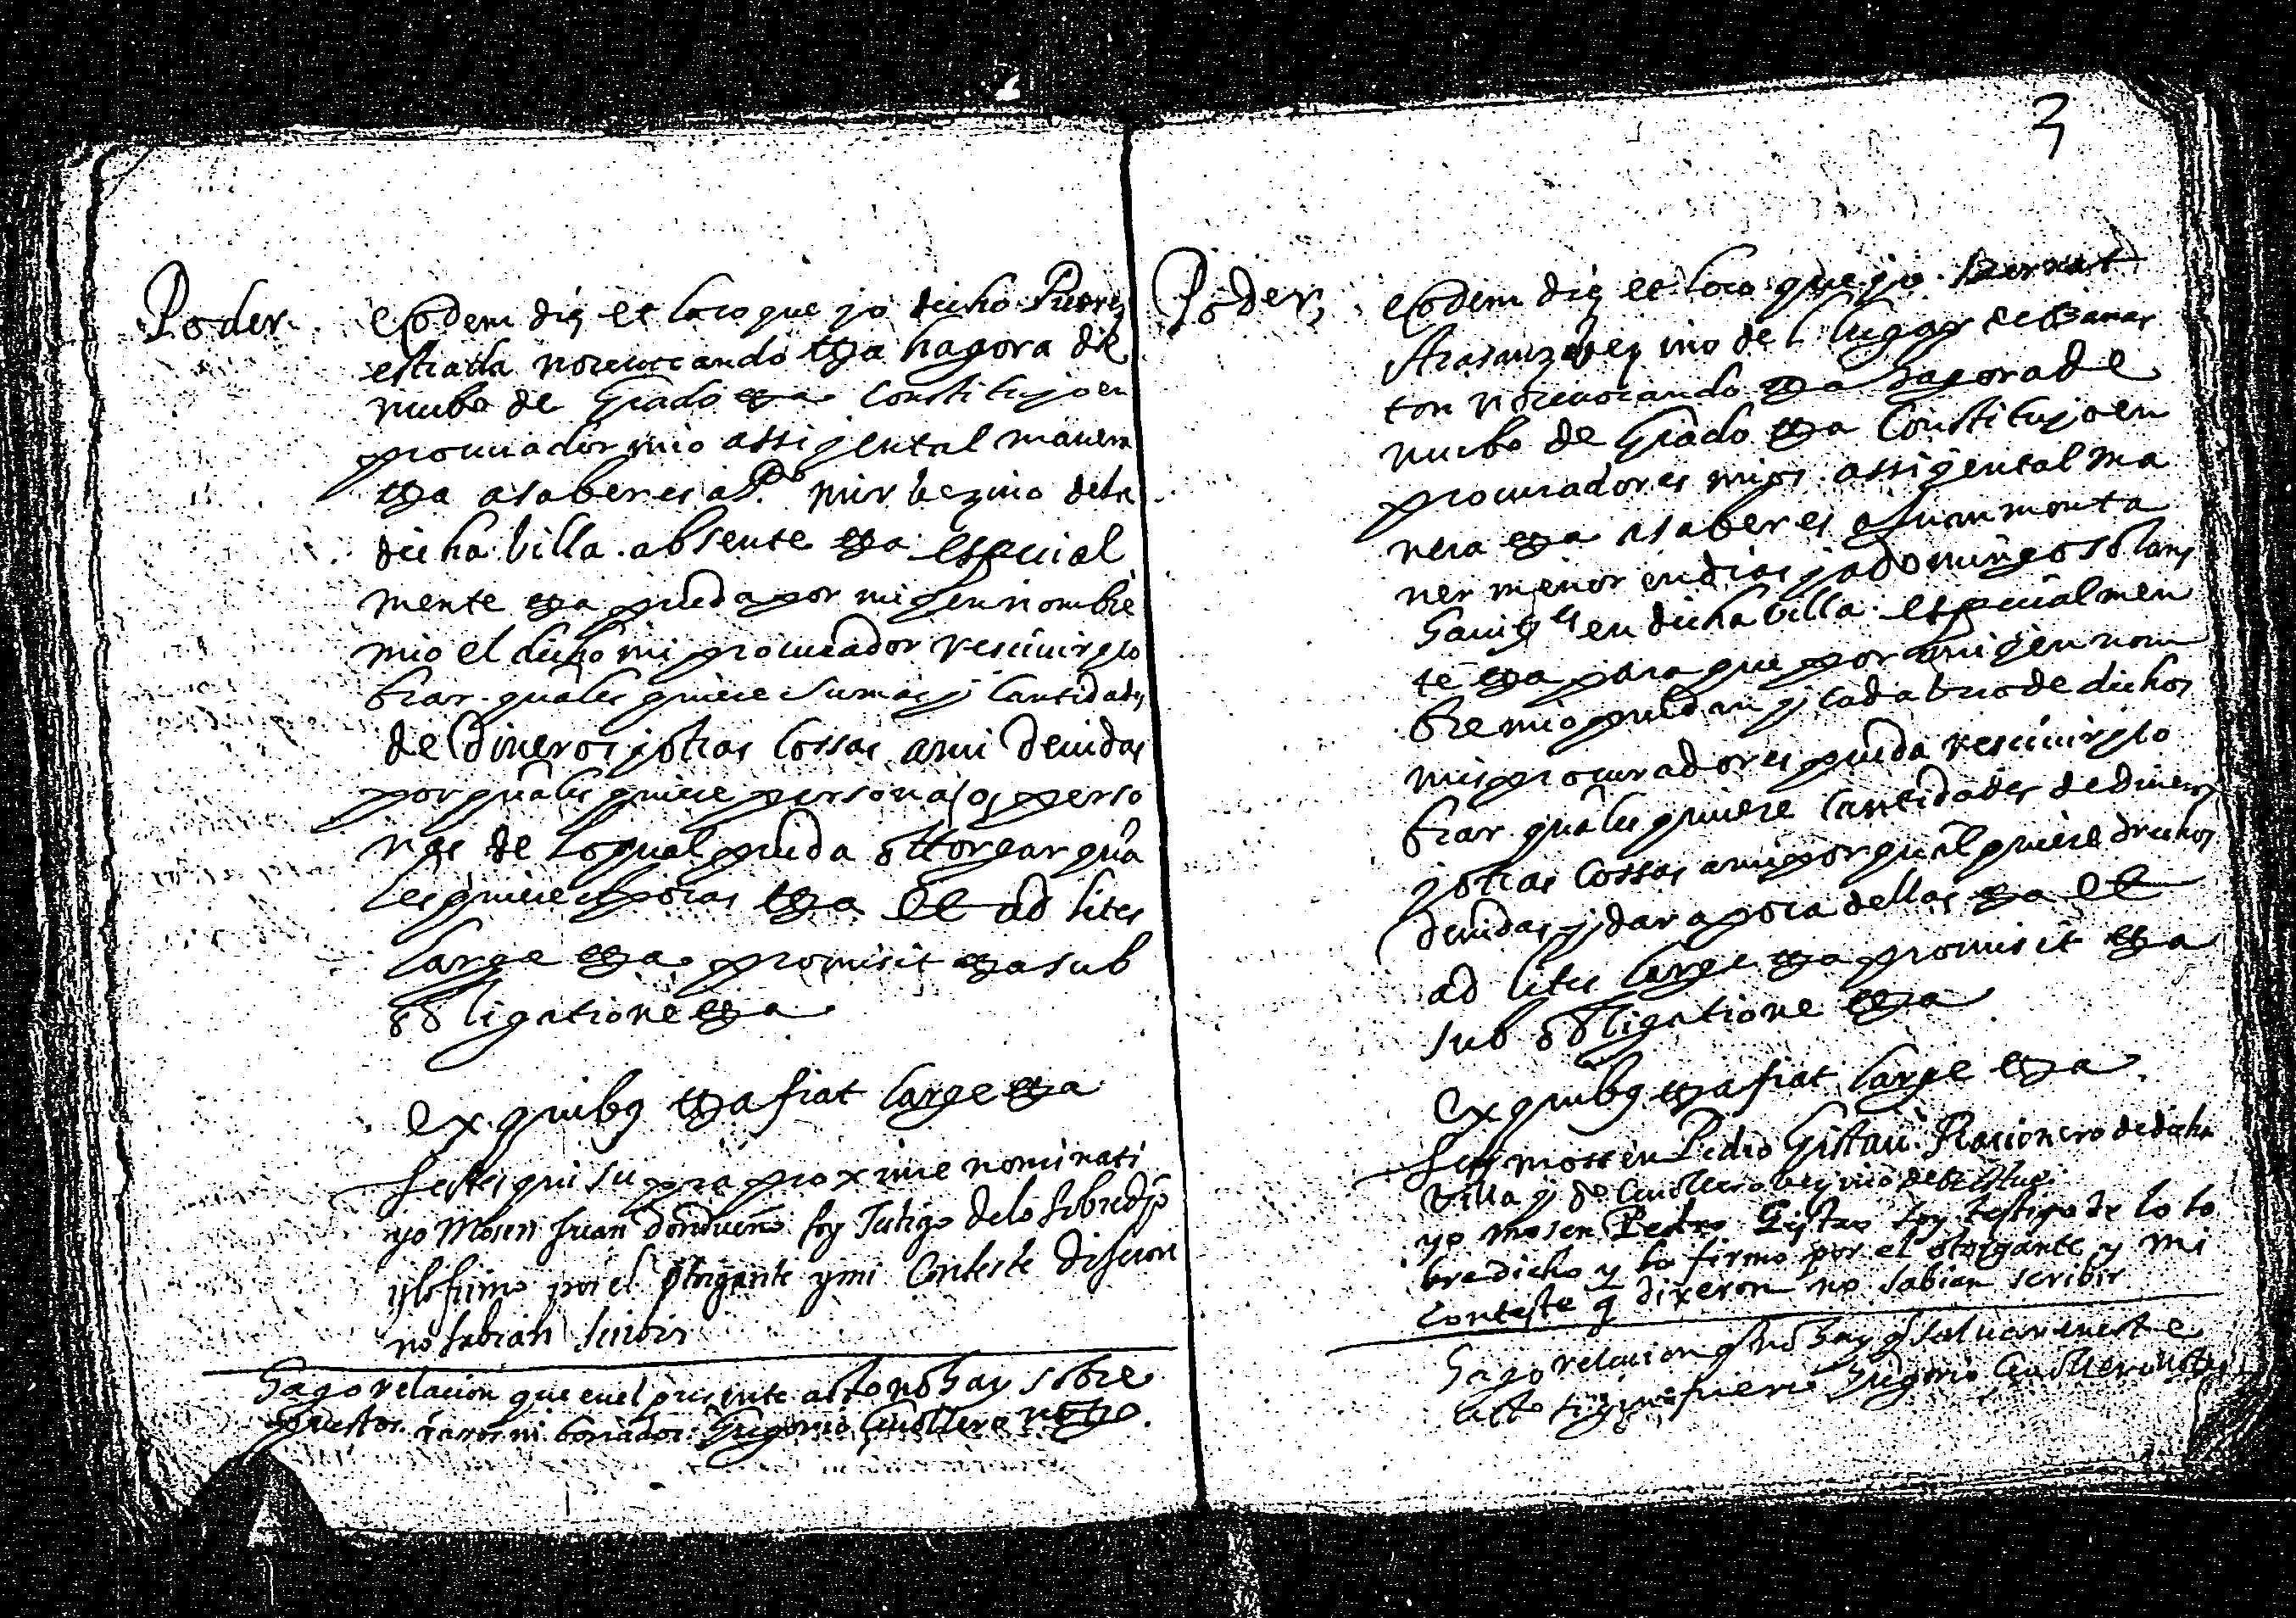 Poder
eodem die et loco que yo dicho Pierres
estrada no revocando etta hagora de
nuebo de Grado etta Constituyo en
procurador mio assi y en tal manera
etta a saber es a P.º mir bezino de la
dicha billa absente etta especial
mente etta pueda por mi y en nombre
mio el dicho mi procurador resciuir y co
brar quales quiere sumas y Cantidades
de dineros y otras Cossas a mi deuidas
por quales quiere persona o perso
nas de lo qual pueda ottorgar qua
les quiere apocas etta et ad lites
large etta promisit etta sub
obligatione etta
ex quibus etta fiat large etta
testes qui supra proxime nominati
yo Mosen Juan soy Testigo de lo sobredho
y lo firmo por el otorgante y mi Conteste dijeron
no sabian scribir
Hago relacion que en el presente acto no hay sobre
puestos raros ni borrados Gregorio Cuollero notº
3
Poder
eodem die et loco que yo Bernart
Arasanz bezino del lugar de Banas
ton no reuocando etta hagora de
nuebo de Grado etta Constituyo en
procuradores mios assi y en tal ma
nera etta a saber es a Juan monta
ner menor en dias y a domingo solans
hauit.es en dicha billa especialmen
te etta para que por mi y en nom
bre mio puedan y cada uno de dichos
mis procuradores pueda resciuir y co
brar quales quiere Cantidades de dineros
y otras Cossas a mi por qual quiere drechos
deuidas y dar apoca dellas etta et
ad lites large etta promisit etta
sub obligatione etta
ex quibus etta fiat large etta
testes mossen Pedro Gistau Racionero de dicha
billa y dº Cuollero bezino de
yo mosen Pedro Gistau soy testigo de lo so
bredicho y lo firmo por el otorgante y mi
conteste q dixeron no sabian scribir
Hago relacion q no hay q saluar en este
acto Gregorio Cuollero notº